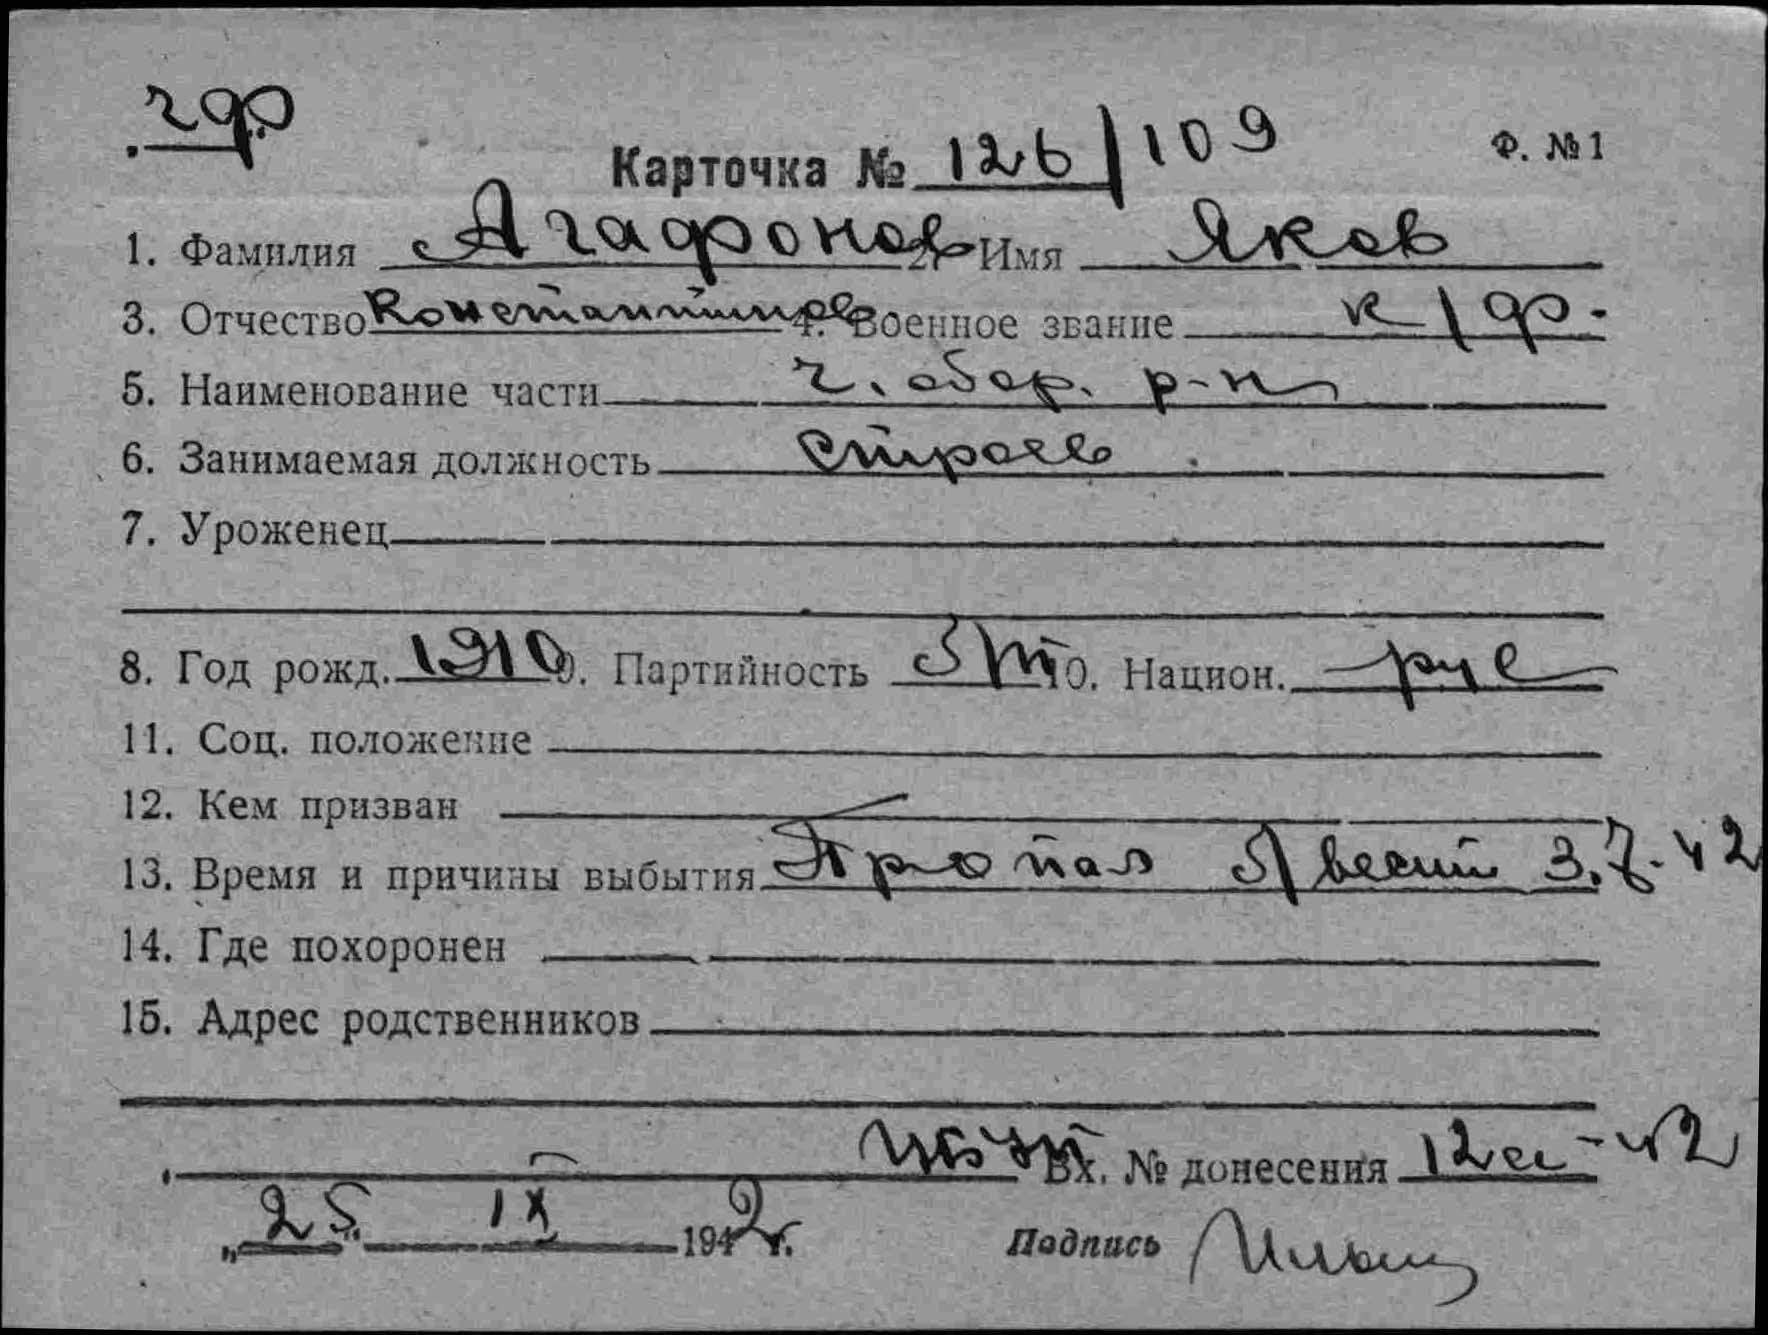 Карточка № 126/109 Ф. № 1
1. Фамилия Агафонов 2. Имя Яков
3. Отчество Константинов 4. Военное звание к/ф.
5. Наименование части г. обор. р-н
6. Занимаемая должность
7. Уроженец
8. Год рожд. 1910 9. Партийность б/п 10. Национ. рус
11. Соц. положение
12. Кем призван
13. Время и причины выбытия Пропал б/вести 3.7.42
14. Где похоронен
15. Адрес родственников
Вх. № донесения
„25“ IX 1942 г. Подпись